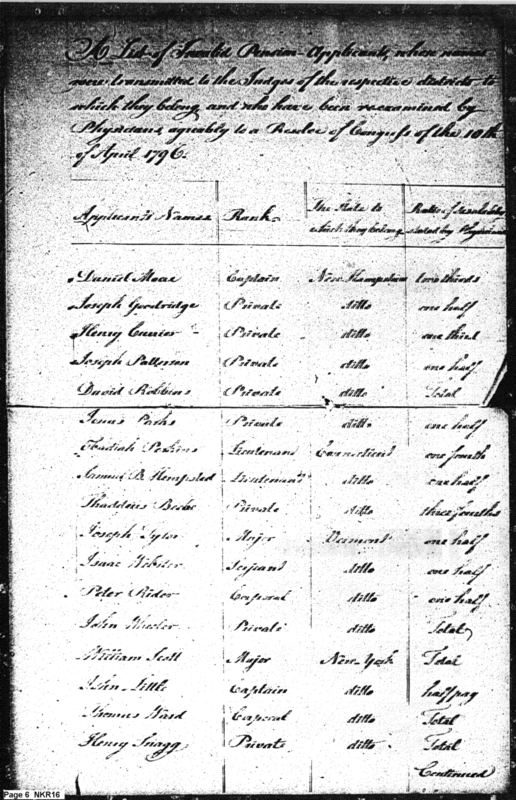 A List of Invalid Pension-Applicants, whose names
were transmitted to the Judges of the respective districts to
which they belong, and who have been reexamined by
Physicians, agreeably to a Resolve of Congress of the 10th
of April 1796.
Applicants Names Rank The State to which they belong by
Daniel Moore Captain New Hampshire two thirds
Joseph Goodridge Private ditto one half
Henry Currier Private ditto one third
Joseph Patterson Private ditto one half
David Robbins Private ditto Total
Private ditto one half
Obadiah Perkins Lieutenant Connecticut one fourth
Samuel B. Hempsted Lieutenant ditto one half
Thaddeus Beebe Private ditto three fourths
Joseph Major Vermont one half
Isaac Webster Serjeant ditto one half
Peter Rider Corporal ditto one half
John Wheeler Private ditto Total
William Scott Major New-York Total
John Little Captain ditto half pay
Thomas Ward Corporal ditto Total
Henry Private ditto Total
Continued
Page 6 NKR16